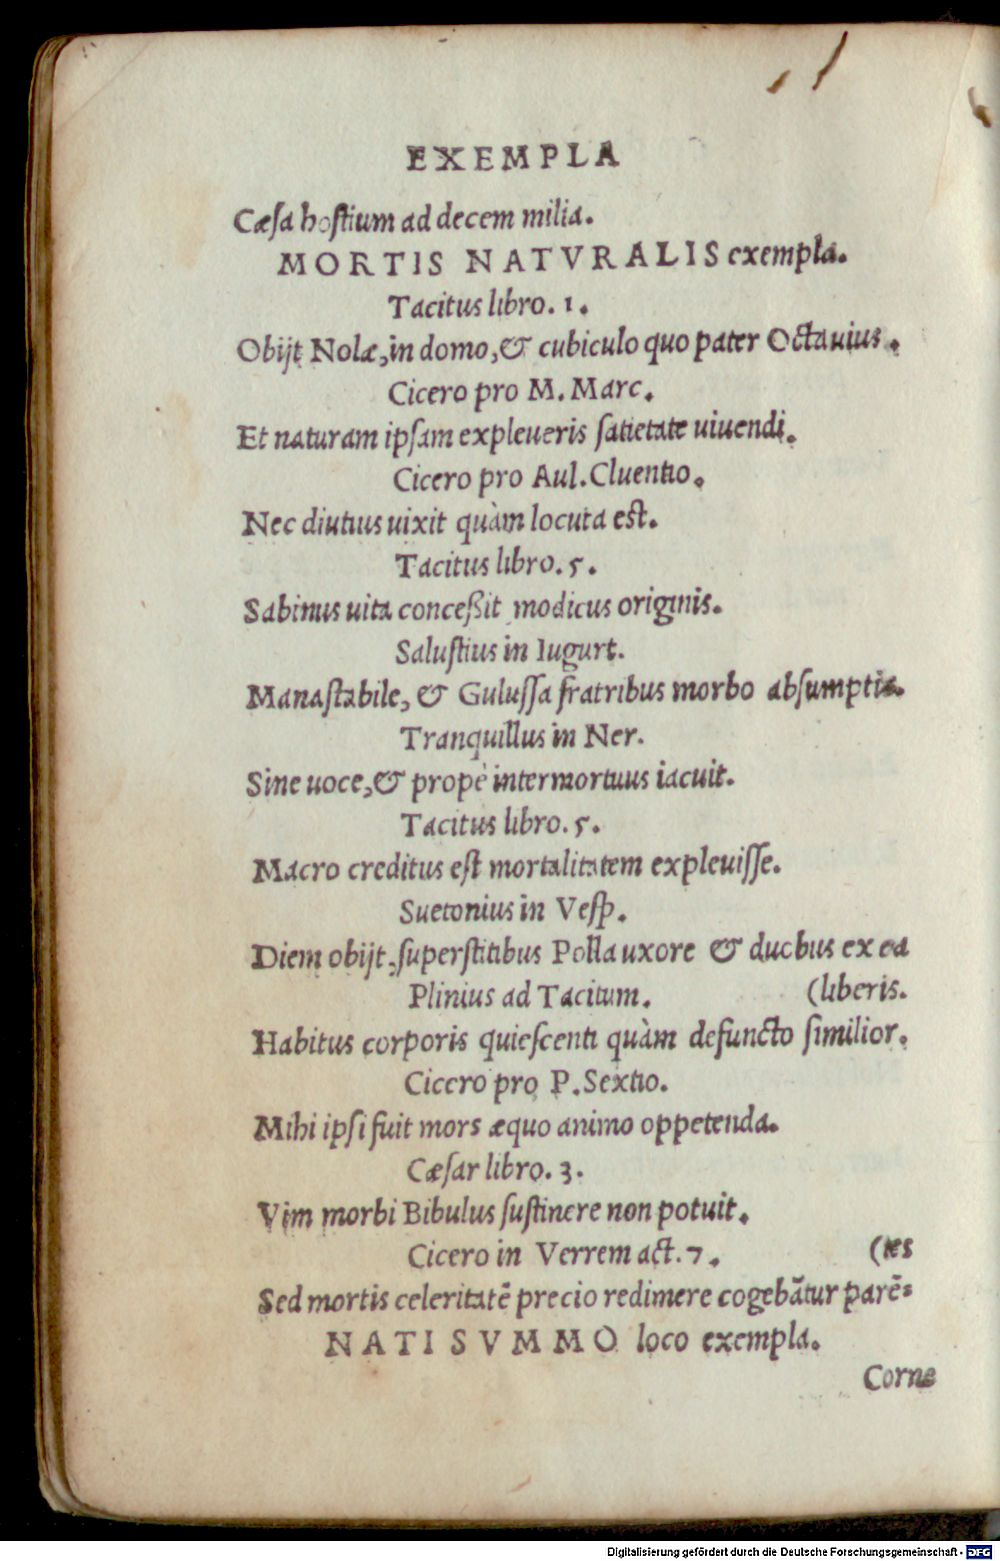 EXEMPLA
Cæſa hoſtium ad decem milia.
MORTIS NATVRALIS exempla.
Tacitus libro. 1.
Obijt Nolæ, in domo, & cubiculo quo pater Octauius.
Cicero pro M. Marc.
Et naturam ipſam expleueris ſatietate uiuendi.
Cicero pro Aul. Cluentio.
Nec diutius uixit quàm locuta eſt.
Tacitus libro. 5.
Sabinus uita conceßit modicus originis.
Saluſtius in Iugurt.
Manaſtabile, & Guluſſa fratribus morbo abſumptis.
Tranquillus in Ner.
Sine uoce, & propè intermortuus iacuit.
Tacitus libro. 5.
Macro creditus eſt mortalitatem expleuiſſe.
Suetonius in Veſp.
Diem obijt, ſuperſtitibus Polla uxore & duobus ex ea
Plinius ad Tacitum. (liberis.
Habitus corporis quieſcenti quàm defuncto ſimilior.
Cicero pro P. Sextio.
Mihi ipſi fuit mors æquo animo oppetenda.
Cæſar libro. 3.
Vim morbi Bibulus ſuſtinere non potuit.
Cicero in Verrem act. 7. (tes
Sed mortis celeritatē precio redimere cogebātur parē=
NATI SVMMO loco exempla.
Corne
Digitalisierung gefördert durch die Deutsche Forschungsgemeinschaft - DFG